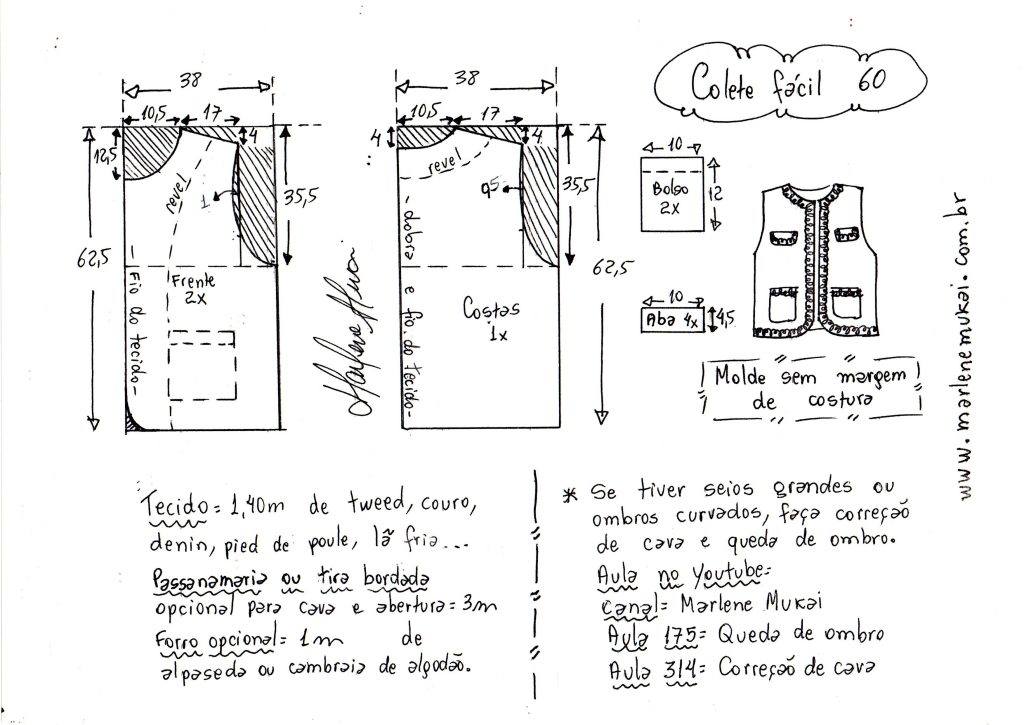 Colete fácil 60
38
10,5 17
4
12,5
revel
1
35,5
62,5
Frente
2x
Fio do tecido
38
10,5 17
4
4
revel
95
35,5
62,5
dobra e fio do tecido
Costas
1x
10
Bolso
2x
12
10
Aba 4x
4,5
Molde sem margem
de costura
www.marlenemukai.com.br
Tecido = 1,40m de tweed, couro,
denin, pied de poule, lã fria...
Passanamaria ou tira bordada
opcional para cava e abertura = 3m
Forro opcional = 1m de
alpaseda ou cambraia de algodão.
* Se tiver seios grandes ou
ombros curvados, faça correçaõ
de cava e queda de ombro.
Aula no Youtube=
canal= Marlene Mukai
Aula 175= Queda de ombro
Aula 314= Correçaõ de cava